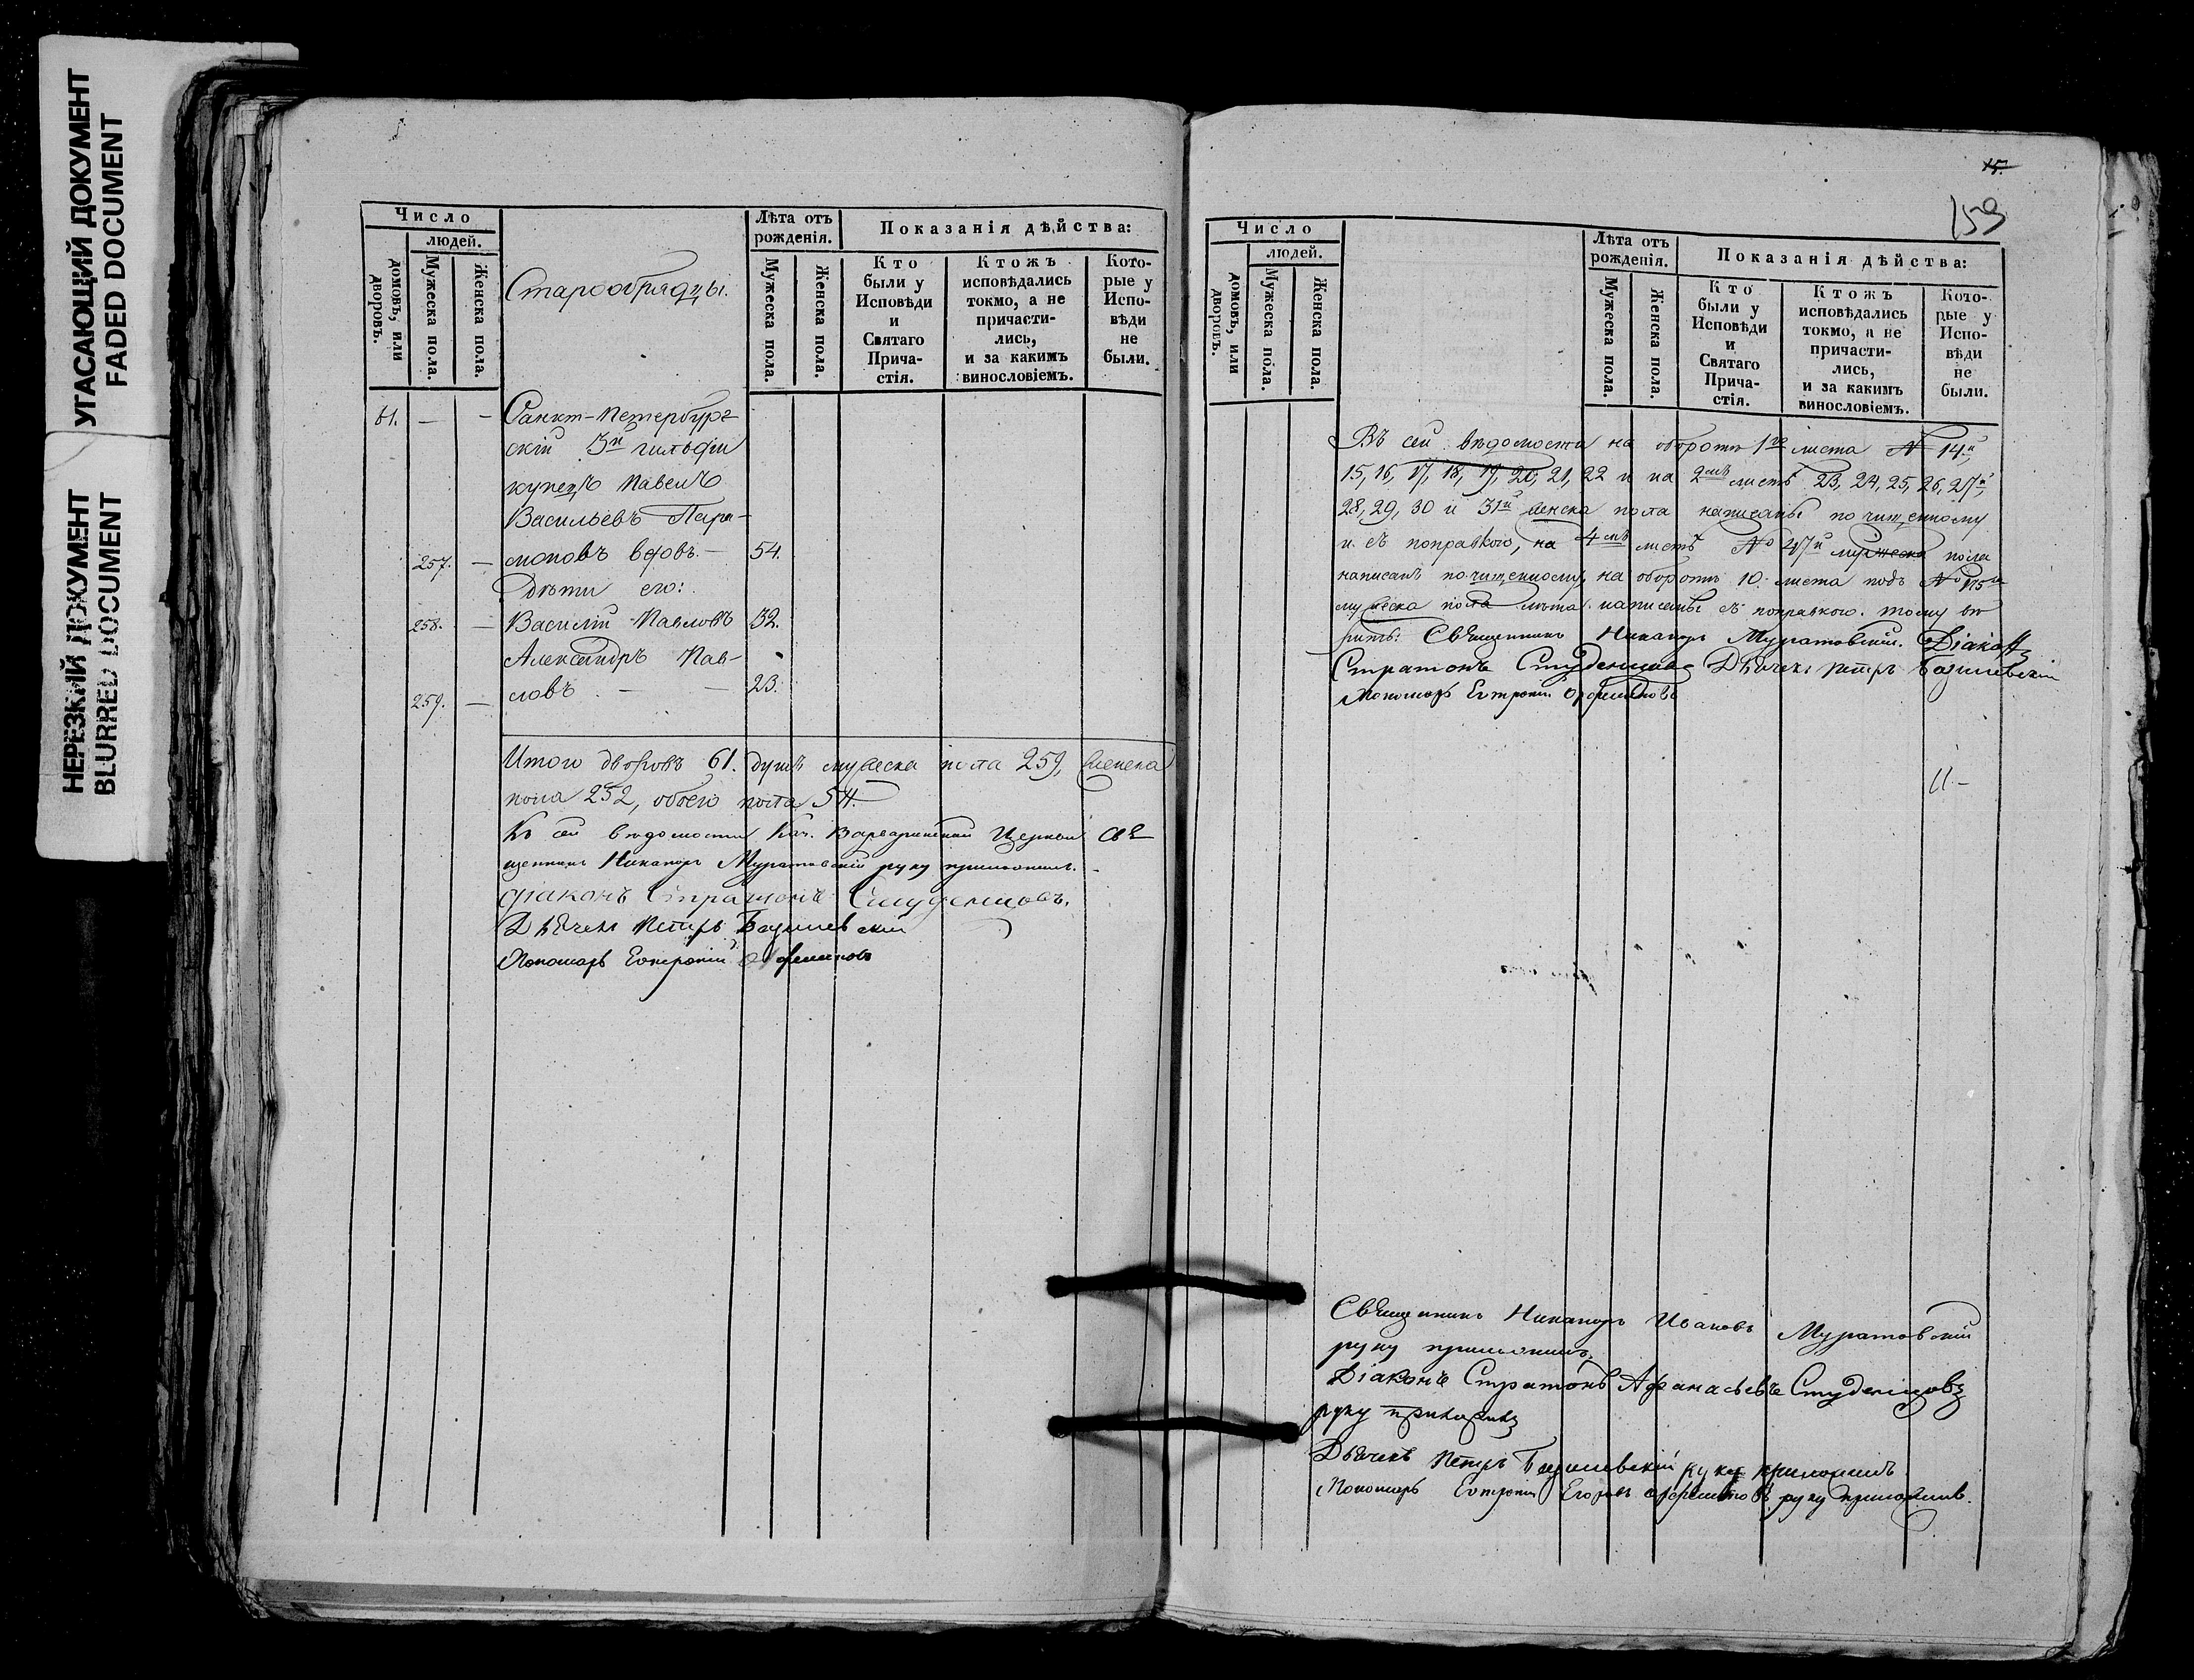 УГАСАЮЩИЙ ДОКУМЕНТ
FADED DOCUMENT
НЕРЕЗКИЙ ДОКУМЕНТ
BLURRED DOCUMENT
Число
людей.
домовъ, или дворовъ.
Мужеска пола.
Женска пола.
Старообрядцы.
Лѣта отъ рожденія.
Мужеска пола.
Женска пола.
Показанія дѣйства:
Кто были у Исповѣди и Святаго Прича-стія.
Ктожъ исповѣдались токмо, а не причасти-лись, и за какимъ винословіемъ.
Кото-рые у Испо-вѣди не были.
61. — — Санкт-Петербург-
скій 3й гильдіи
купецъ Павелъ
Васильевъ Пара-
257. — моновъ вдовъ. — 54.
Дѣти его:
258. — Василій Павловъ 32.
Александръ Пав-
259. — ловъ. — — 23.
Итого дворовъ 61. душъ мужеска пола 259, женска
пола 252, обоего пола 511.
Къ сей вѣдомости Варваринской Церкви Свя-
щенникъ Никаноръ Муратовскій руку приложилъ.
Діаконъ Стратонъ Студенцовъ.
Дьячекъ Петръ
Пономарь
15.
159
Число
людей.
домовъ, или дворовъ.
Мужеска пола.
Женска пола.
Лѣта отъ рожденія.
Мужеска пола.
Женска пола.
Показанія дѣйства:
Кто были у Исповѣди и Святаго Прича-стія.
Ктожъ исповѣдались токмо, а не причасти-лись, и за какимъ винословіемъ.
Кото-рые у Испо-вѣди не были.
Въ сей вѣдомости на оборотѣ 1го листа № 14й,
15, 16, 17, 18, 19, 20, 21, 22 и на 2мъ листѣ 23, 24, 25, 26, 27й,
28, 29, 30 и 31й женска пола написаны по чищенному
и съ поправкою, на 4мъ листѣ № 47й мужеска пола
написанъ по чищенному, на оборотѣ 10 листа подъ № 175м
мужеска пола лѣта написаны съ поправкою. тому вѣ
рить: Священникъ Никаноръ Муратовскій. Діаконъ
Стратонъ Студенцовъ Дьячекъ Петръ
Пономарь
11-
Священникъ Никаноръ Ивановъ Муратовскій
руку приложилъ.
Діаконъ Стратонъ Афанасьевъ Студенцовъ
руку приложилъ
Дьячекъ Петръ руку приложилъ
Пономарь Егоровъ руку приложилъ.